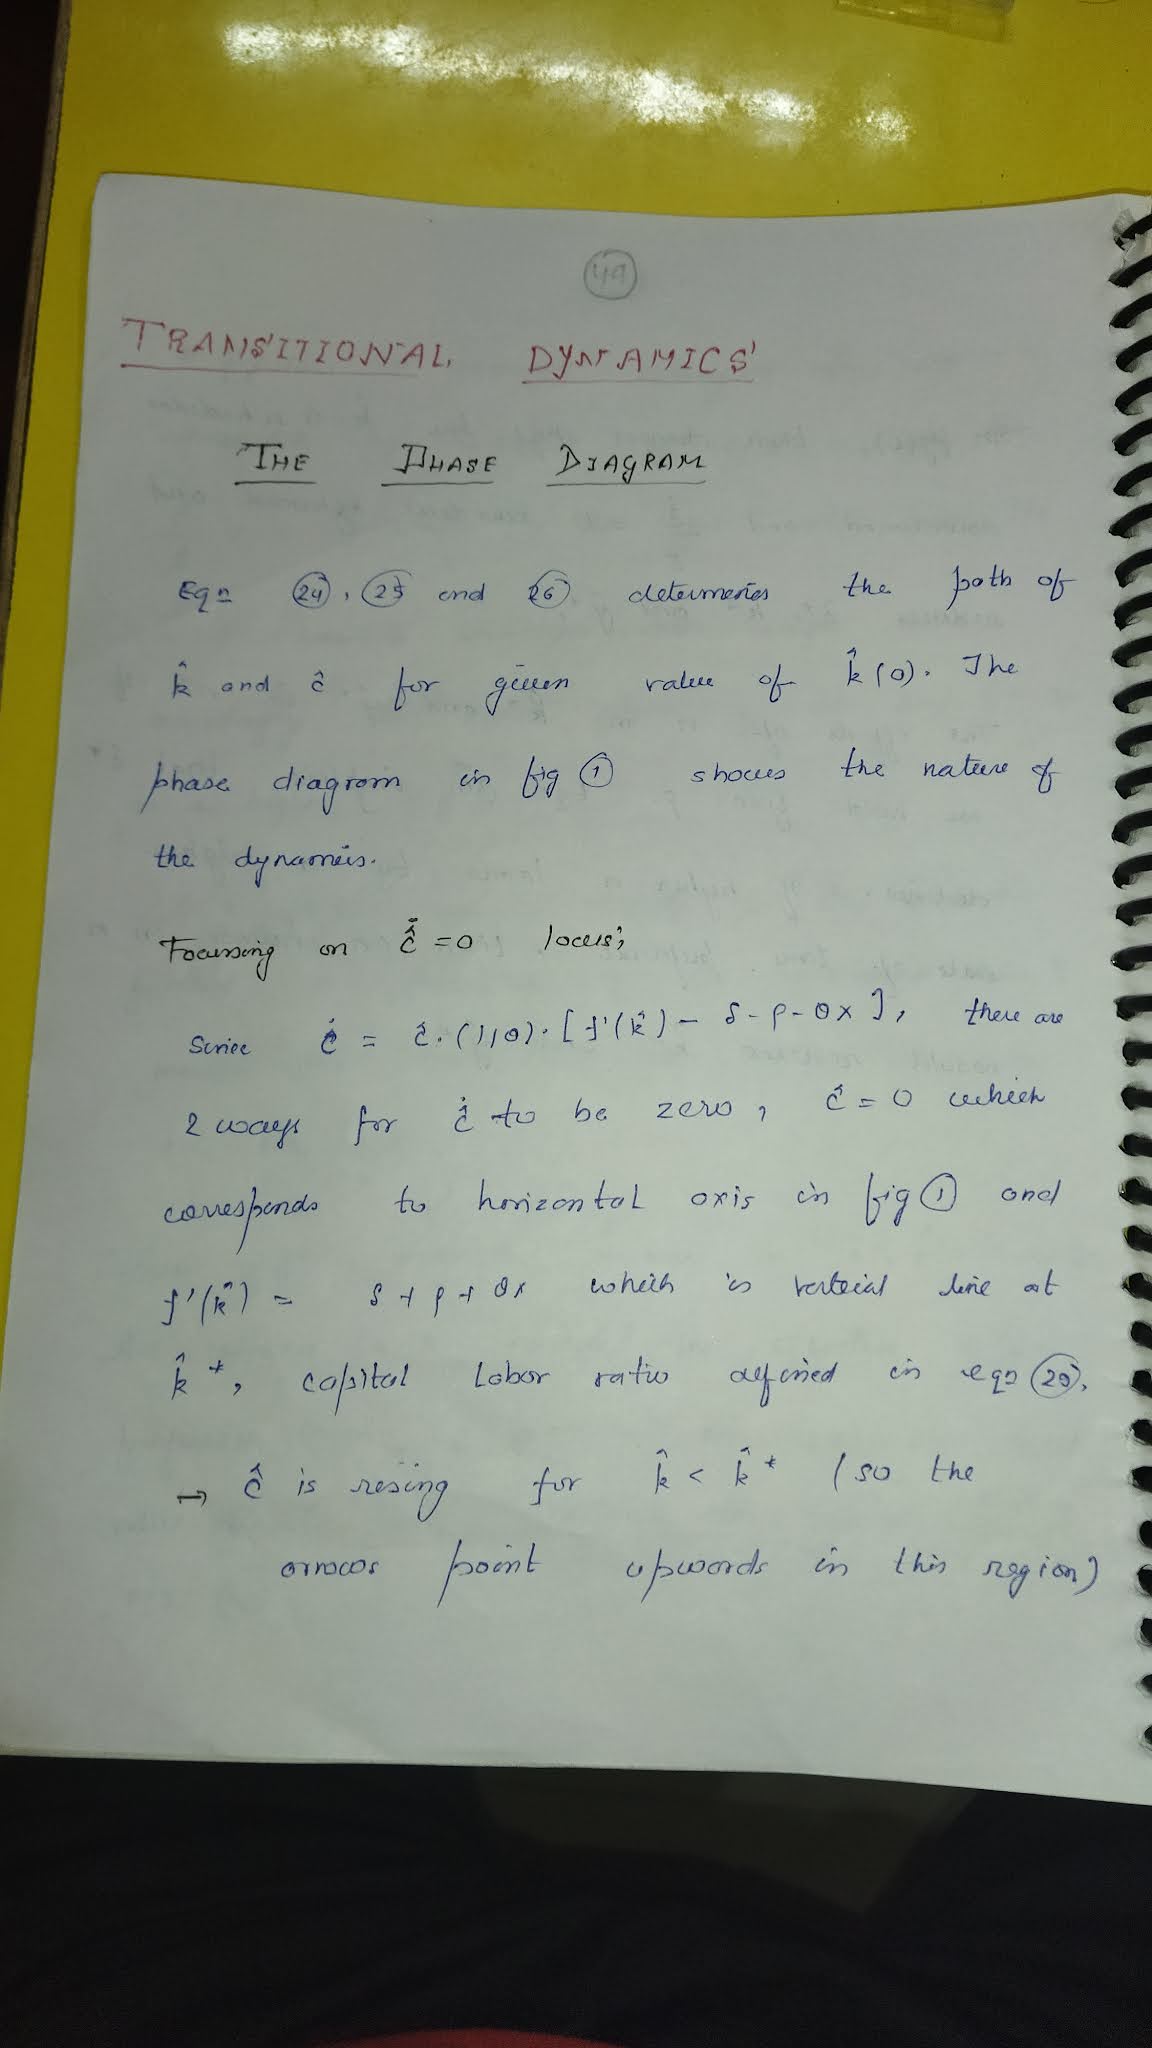 49
TRANSITIONAL DYNAMICS
THE PHASE DIAGRAM
Eqn 24, 25 and 26 determines the path of
k̂ and ĉ for given value of k̂(0). The
phase diagram in fig 1 shows the nature of
the dynamics.
Focussing on ĉ̇ = 0 locus,
Since ĉ̇ = ĉ.(1/θ).[f'(k̂) - δ - ρ - θx], there are
2 ways for ĉ̇ to be zero, ĉ = 0 which
corresponds to horizontal axis in fig 1 and
f'(k̂) = δ + ρ + θx which is vertical line at
k̂*, capital labor ratio defined in eqn
→ ĉ is rising for k̂ < k̂* (so the
arrows point upwards in this region)